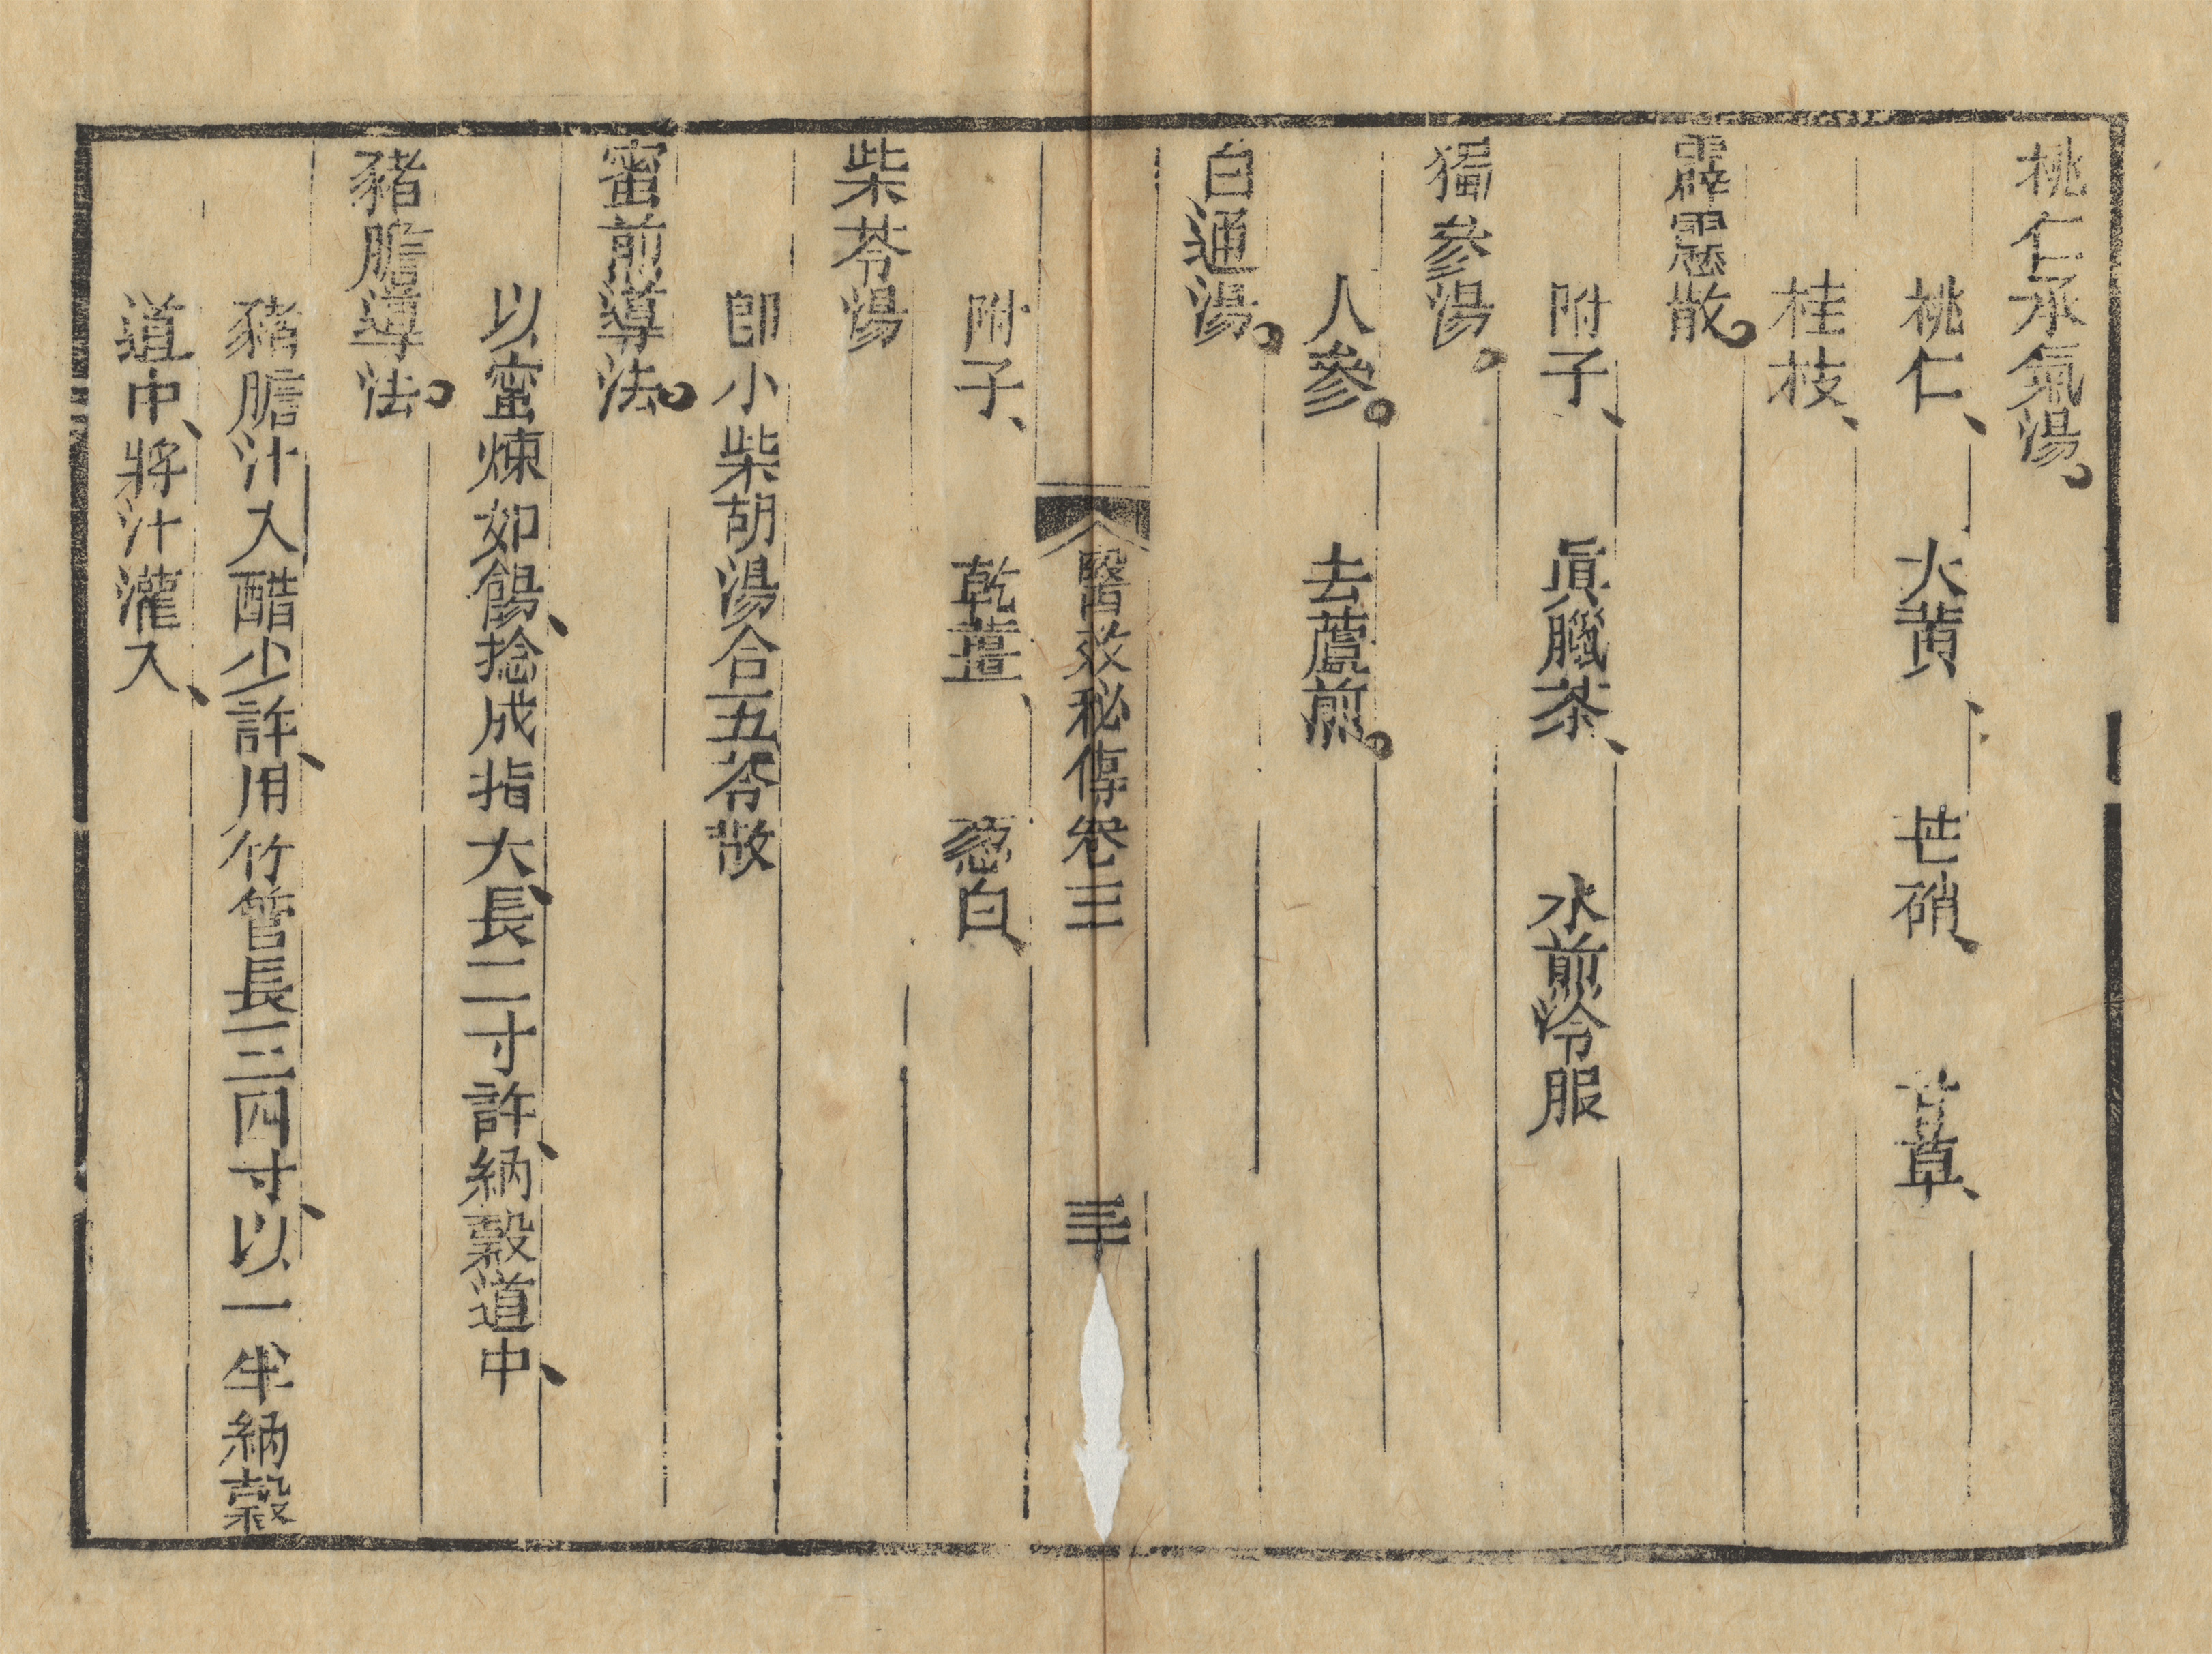 桃仁承氣湯。
桃仁、　大黄、　芒硝、　甘草、
桂枝、
霹靂散。
附子、　眞臘茶、　水煎冷服
獨參湯。
人參。　去蘆煎。
白通湯。
醫效秘傳卷三　三十
附子、　乾薑、　葱白、
柴苓湯
卽小柴胡湯合五苓散
蜜煎導法。
以蜜煉如餳、捻成指大、長二寸許、納穀道中、
豬膽導法。
豬膽汁入醋少許、用竹管長三四寸、以一半納穀
道中、將汁灌入、